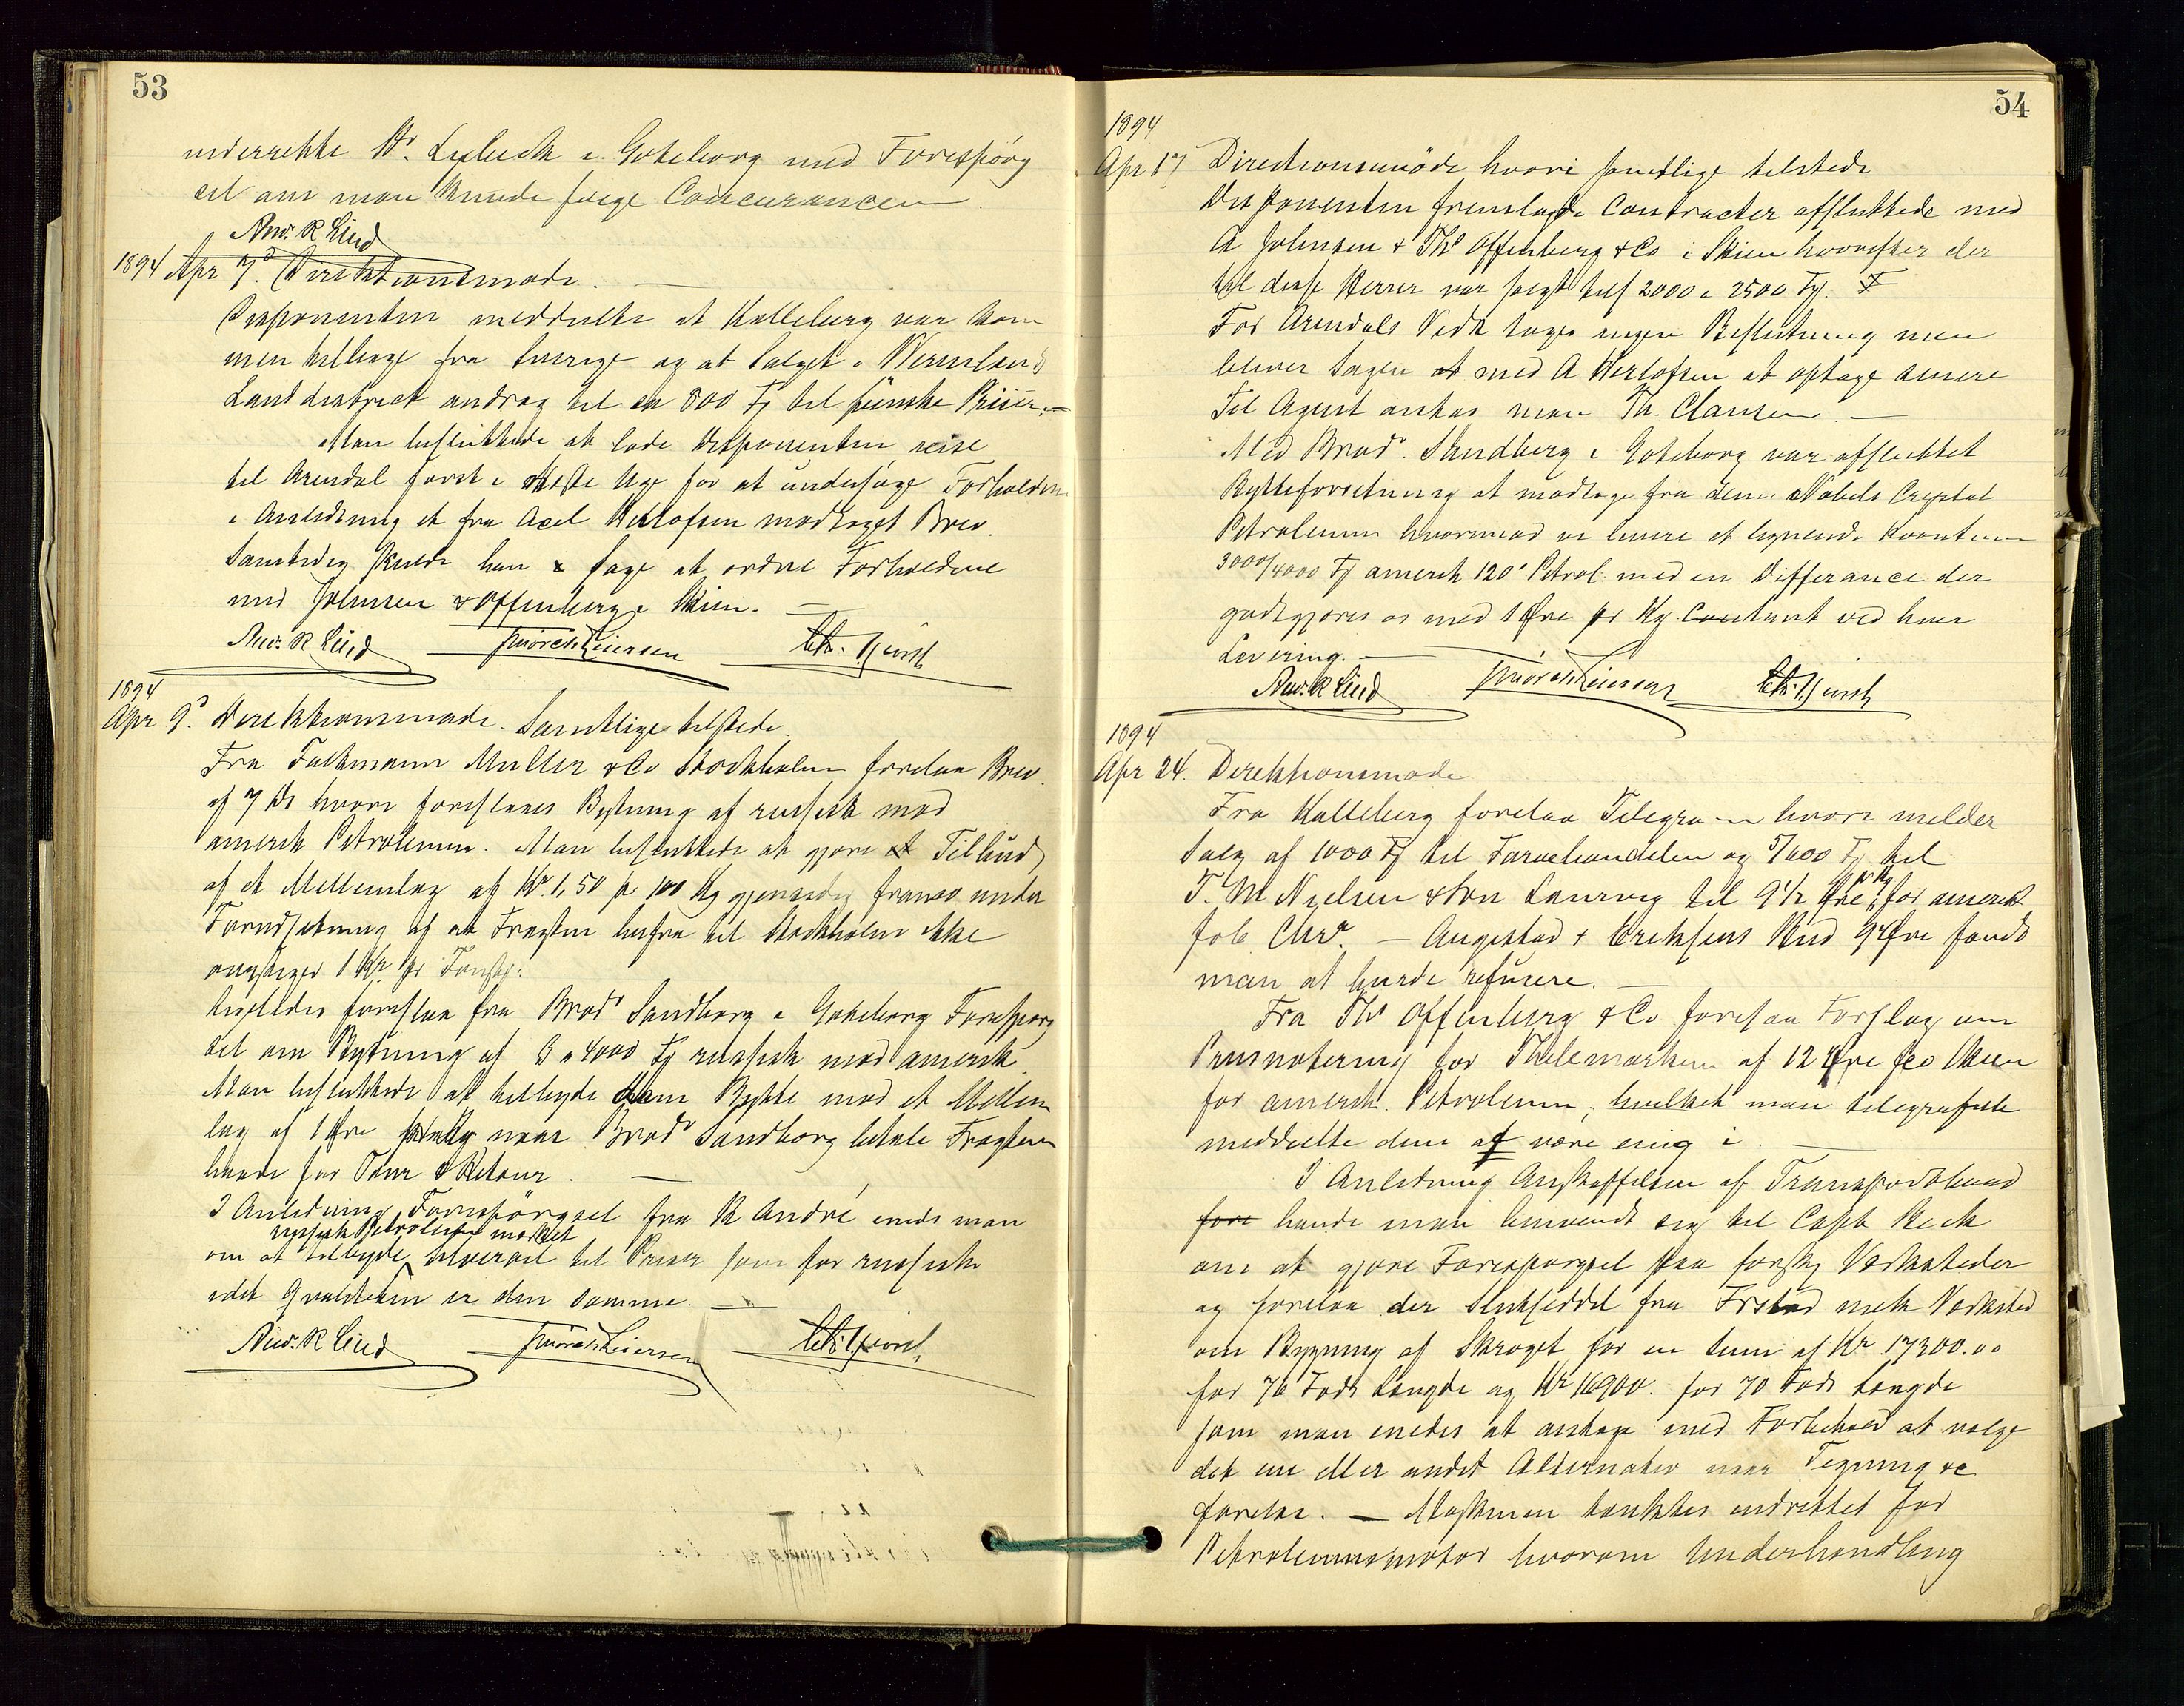 53
underrette Hr. Lybeck i Goteborg med Forespörg
sel om man kunde følge Concurancen
And. R Lind
1894 Apr 7d. Direktionsmøde.
Disponenten meddelte at Kalleberg var kom
men tilbage fra Sverige og at Salget i Wermlands
Landdistrict androg til ca 800 Fj til svenske Priser. —
Man besluttede at lade Disponenten reise
til Arendal først i næste Uge for at undersøge Forholdene
i Anledning et fra Axel Herlofsen modtaget Brev.
Samtidig skulde han søge at ordne Forholdene
med Johnsen & Offenberg i Skien. —
And. R Lind
1894
Apr 9d. Direktionsmøde. Samtlige tilstede.
Fra Falkmann Muller & Co Stockholm forelaa Brev
af 7 Ds hvori foreslaaes Bytning af russisk mod
amerik Petroleum. Man besluttede at gjøre et Tilbud
af et Mellemlag af Kr. 1,50 pr 100 Kg gjensidig franco under
Forudsætning af at Fragten herfra til Stockholm ikke
overstiger 1 Kr pr
Ligeledes forelaa fra Brødr Sandberg i Goteborg Forespørg
sel om Bytning af 3 a 4000 Fj russisk mod amerik.
Man besluttede at tilbyde dem Bytte mod et Mellem
lag af 1 Øre pr Kg naar Brødr Sandberg betale Fragten
baade for Tour & Retour. —
I Anledning Forespörgsel fra R André enedes man
russisk Petroleum mærket
om at tilbyde silveroil til Priser som for russiske
idet Qvaliteten er den samme. —
And. R Lind
54
1894
Apr 17 Directionsmöde hvori samtlige tilstede
Disponenten fremlagde Contracter afsluttede med
A Johnsen & Ths Offenberg & Co i Skien hvorefter der
til disse Herrer var solgt tils 2000 a 2500 Fj.
For Arendals Vedk toges ingen Beslutning men
bliver Sagen at med A Herlofsen at optage senere
Til Agent antas man Th. Clausen. —
Med Brød. Sandberg i Goteborg var afsluttet
Bytteforretning at modtage fra dem Nobels Crystal
Petroleum hvormod vi levere et lignende Kvantum
3000/4000 Fj amerik 120° Petrol. med en Differance der
godtgjøres os med 1 Øre pr Kg. Contant ved hver
Levering. —
And. R Lind
1894
Apr 24. Direktionsmøde
Fra Kalleberg forelaa Telegram hvori melder
Salg af 1000 Fj til Farvehandelen og 5/600 Fj til
T. M Nielsen & Søn Laurvig til 9 1/2 Øre pr Kg for amerik
fob Chra. — Angestad & Eriksens Bud 9 Øre fandt
man at burde refusere. —
Fra Ths Offenberg & Co forelaa Forslag om
Prisnotering for Thelemarken af 12 Øre fco Skien
for amerik. Petroleum, hvilket man telegrafisk
meddelte dem at være enig i. —
I Anledning Anskaffelsen af Transportbaad
fore havde man henvendt sig til Capt Beck
om at gjøre Forespørgsel paa forskj Værksteder
og forelaa der Slutseddel fra Ørstad mek Værksted
om Bygning af Skroget for en Sum af Kr 17300.00
for 76 Fods Længde og Kr 16900. for 70 Fods Længde
som man enedes at antage med Forbehold at vælge
det ene eller andet Alternativ naar Tegning &c
forelaa. — Maskinen tænktes indrettet for
Petroleumsmotor hvorom Underhandling